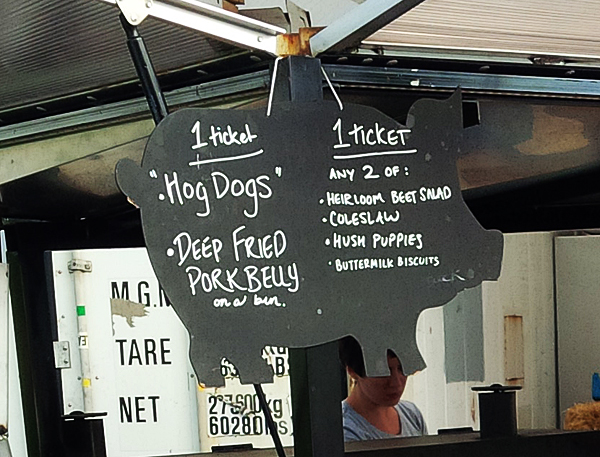 1 ticket
"•Hog Dogs"
•DEEP FRIED
PORKBELLY
on a bun.
1 TICKET
ANY 2 OF:
•HEIRLOOM BEET SALAD
•COLESLAW
•HUSH PUPPIES
•BUTTERMILK BISCUITS
M.G.
TARE
NET
60280lbs